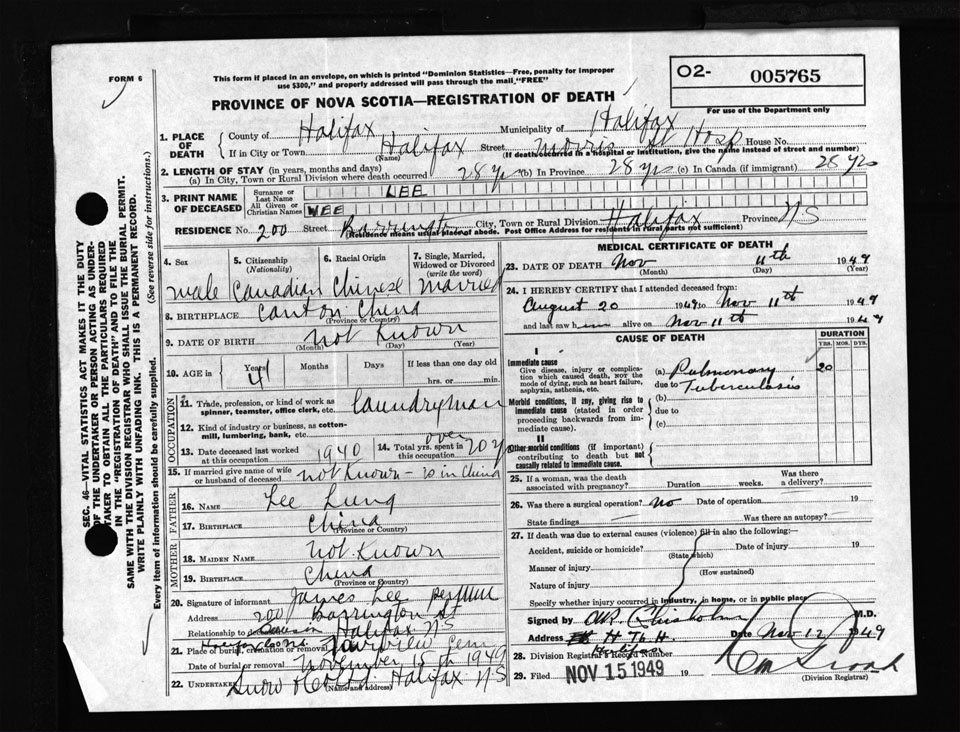 FORM 6
This form if placed in an envelope, on which is printed "Dominion Statistics—Free, penalty for improper
use $300," and properly addressed will pass through the mail "FREE"
O2- 005765
For use of the Department only
PROVINCE OF NOVA SCOTIA—REGISTRATION OF DEATH
1. PLACE OF DEATH
County of Halifax Municipality of Halifax
If in City or Town Halifax (Name) Street Morris St Hosp House No.
(If death occurred in a hospital or institution, give the name instead of street and number)
2. LENGTH OF STAY (in years, months and days)
(a) In City, Town or Rural Division where death occurred 28 yrs (b) In Province 28 yrs (c) In Canada (if immigrant) 28 yrs
3. PRINT NAME OF DECEASED
Surname or Last Name LEE
All Given or Christian Names WEE
RESIDENCE No. 200 Street Barrington City, Town or Rural Division Halifax Province NS
(Residence means usual place of abode. Post Office Address for residents in rural parts not sufficient)
4. Sex
5. Citizenship (Nationality)
6. Racial Origin
7. Single, Married, Widowed or Divorced (write the word)
male Canadian Chinese Married
8. BIRTHPLACE Canton China
(Province or Country)
9. DATE OF BIRTH not Known
(Month) (Day) (Year)
10. AGE in Years 41 Months Days If less than one day old
hrs. or min.
OCCUPATION
11. Trade, profession, or kind of work as spinner, teamster, office clerk, etc. Laundryman
12. Kind of industry or business, as cotton-mill, lumbering, bank, etc.
13. Date deceased last worked at this occupation 1940
14. Total yrs. spent in this occupation over 20 y
15. If married give name of wife or husband of deceased not Known - is in China
FATHER
16. NAME Lee Lung
17. BIRTHPLACE China
(Province or Country)
MOTHER
18. MAIDEN NAME not Known
19. BIRTHPLACE China
(Province or Country)
20. Signature of informant James Lee per
Address 200 Barrington St
Relationship to deceased Cousin Halifax NS
21. Place of burial, cremation or removal Fairview Cem
Date of burial or removal November 15th 1949
22. Undertaker Snow Halifax NS
(Name and address)
MEDICAL CERTIFICATE OF DEATH
23. DATE OF DEATH Nov 11th 1949
(Month) (Day) (Year)
24. I HEREBY CERTIFY that I attended deceased from:
August 20 1949 to Nov 11th 1949
and last saw him alive on Nov 11th 1949
CAUSE OF DEATH
DURATION
YRS. MOS. DYS.
I
Immediate cause
Give disease, injury or complication which caused death, not the mode of dying, such as heart failure, asphyxia, asthenia, etc.
(a) Pulmonary 20
due to Tuberculosis
Morbid conditions, if any, giving rise to immediate cause (stated in order proceeding backwards from immediate cause).
(b)
due to
(c)
II
Other morbid conditions (if important) contributing to death but not causally related to immediate cause.
25. If a woman, was the death associated with pregnancy? Duration weeks. Was there a delivery?
26. Was there a surgical operation? No Date of operation 19
State findings Was there an autopsy?
27. If death was due to external causes (violence) fill in also the following:—
Accident, suicide or homicide? Date of injury 19
(State which)
Manner of injury
(How sustained)
Nature of injury
Specify whether injury occurred in industry, in home, or in public place
Signed by Chisholm M.D.
Address H. Th. H. Halifax Date Nov 12 1949
28. Division Registrar's Record Number
29. Filed NOV 15 1949 19
(Division Registrar)
SEC. 46—VITAL STATISTICS ACT MAKES IT THE DUTY
OF THE UNDERTAKER OR PERSON ACTING AS UNDER-
TAKER TO OBTAIN ALL THE PARTICULARS REQUIRED
IN THE "REGISTRATION OF DEATH" AND TO FILE THE
SAME WITH THE DIVISION REGISTRAR WHO SHALL ISSUE THE BURIAL PERMIT.
WRITE PLAINLY WITH UNFADING INK. THIS IS A PERMANENT RECORD.
Every item of information should be carefully supplied. (See reverse side for instructions.)